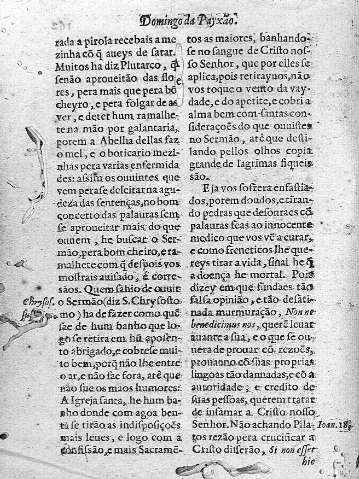 Domingo da Payxão.
rada a pirola recebais a me
zinha cõ q̃ aueys de sarar.
Muitos ha diz Plutarco, q̃
senão aproueitão das flo
res, pera mais que pera bõ
cheyro, e pera folgar de as
ver, e deter hum ramalhe-
te na mão por galantaria,
porem a Abelha dellas faz
o mel, e o boticario mezi-
nhas pera varias enfermida
des: assi são os ouuintes que
vem pera se deleitar na agu-
deza das sentenças, no bom
concetto das palauras sem
se aproueitar mais do que
ouuem, he buscar o Ser-
mão, pera bom cheiro, e ra-
malhete com q̃ despois vos
mostrais auisado, e corte-
sãos. Quem sahio de ouuir
Chrysost.
o Sermão (diz S. Chrysosto
mo) ha de fazer como quẽ
sae de hum banho que lo-
go se retira em hũ aposen-
to abrigado, e cobrese mui
to bem, porq̃ não lhe entre
o ar, e não sae fora, atè que
não sue os maos humores:
A Igreja sancta, he hum ba-
nho donde com agoa ben-
ta se tirão as indisposições
mais leues, e logo com a
confissão, e mais Sacramẽ-
tos as maiores, banhando-
se no sangue de Cristo nos-
so Senhor, que por elles se
aplica, pois retiraynos, não
vos toque o vento da vay-
dade, e do apetite, e cobri a
alma bem com santas con-
siderações do que ouuistes
no Sermão, atè que desti-
lando pellos olhos copia
grande de lagrimas fiqueis
são.
E ja vos sofrera enfastia-
dos, porem doudos, e tiran-
do pedras que desonraes cõ
palauras feas ao innocente
medico que vos vẽ a curar,
e como freneticos lhe que-
reys tirar a vida, sinal he q̃
a doença he mortal. Pois
dizey em que fundaes tão
falsa opinião, e tão desati-
nada murmuração, Non ne
benedicimus nos, querẽ leuar
auante a sua, e o que se ou-
uera de prouar cõ rezoẽs,
prouano co com suas proprias
lingoas tão danadas, e cõ a
autoridade, e credito de
suas pessoas, querem tratar
de infamar a Cristo nosso
Senhor. Não achando Pila-
Ioan. 18.
tos rezão pera crucificar a
Cristo disserão, Si non esset
hic